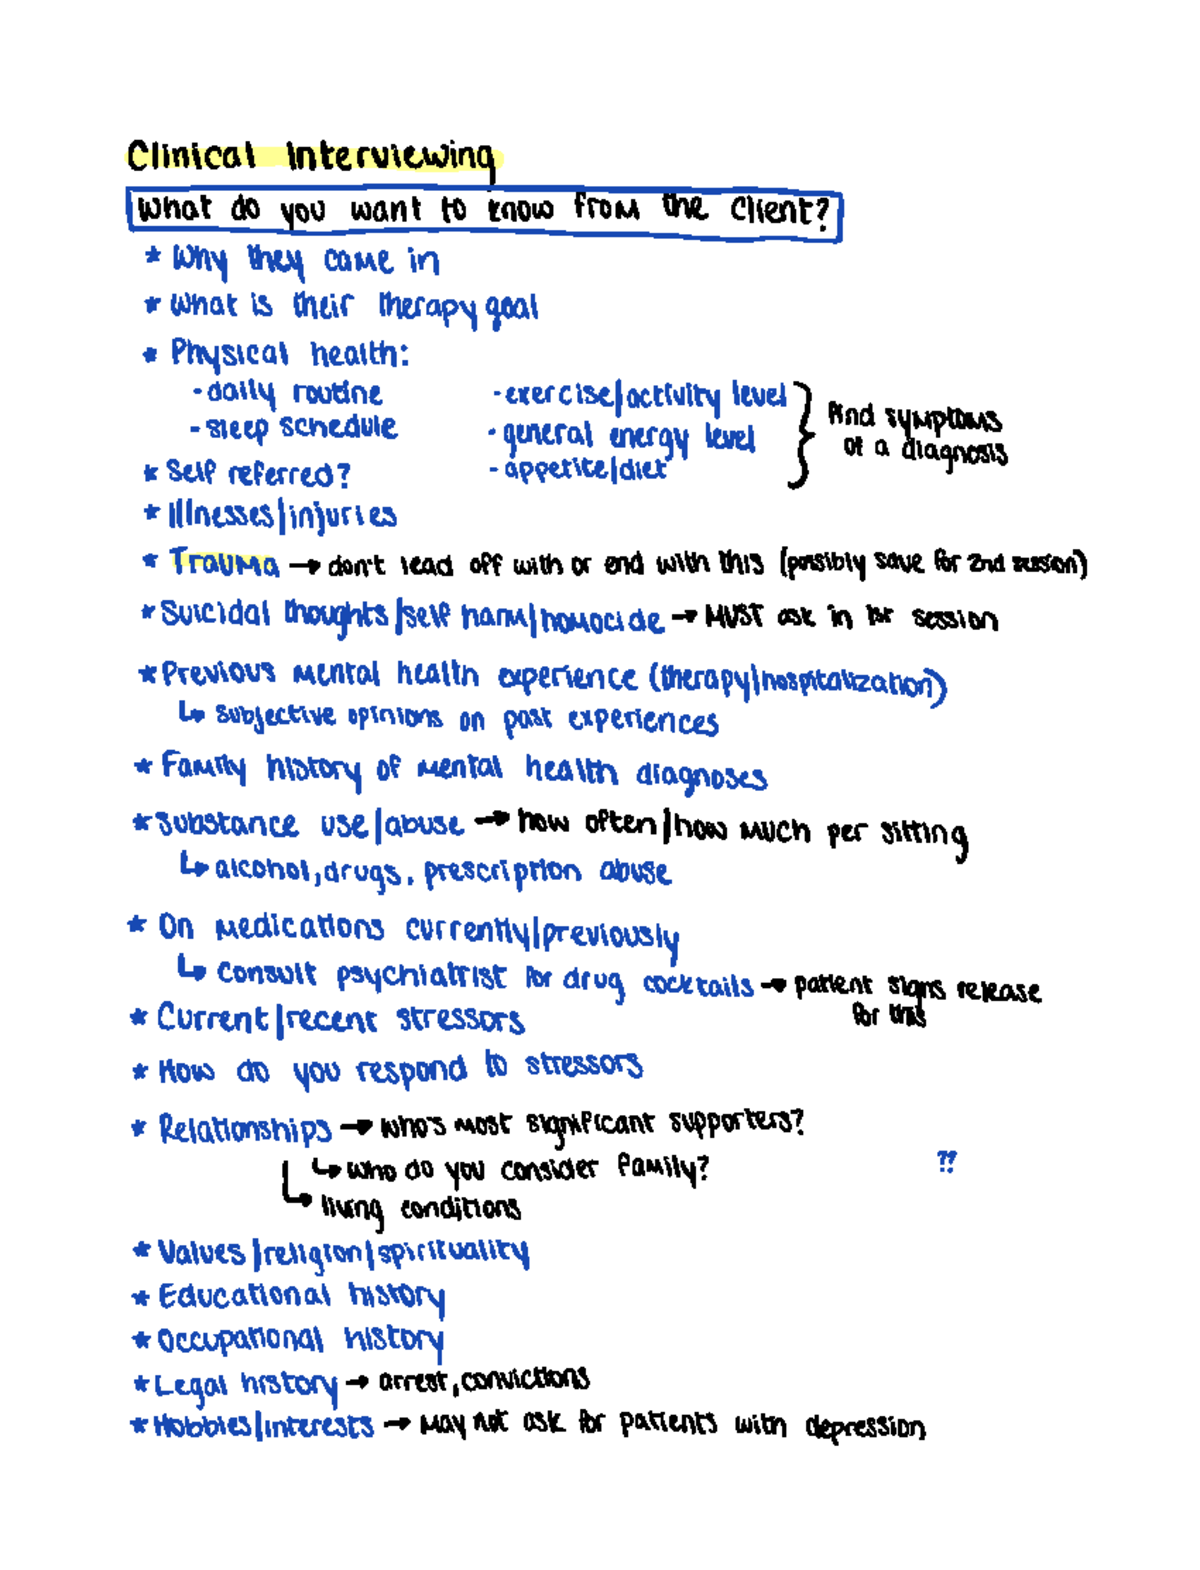 Clinical Interviewing
What do you want to know from the client?
* Why they came in
* What is their therapy goal
* Physical health:
- daily routine - exercise/activity level
- sleep schedule - general energy level
- appetite/diet
find symptoms
of a diagnosis
* Self referred?
* Illnesses/injuries
* Trauma → don't lead off with or end with this (possibly save for 2nd session)
* Suicidal thoughts/self harm/homocide → MUST ask in 1st session
* Previous mental health experience (therapy/hospitalization)
↳ subjective opinions on past experiences
* Family history of mental health diagnoses
* Substance use/abuse → how often/how much per sitting
↳ alcohol, drugs, prescription abuse
* On medications currently/previously
↳ consult psychiatrist for drug cocktails → patient signs release
for this
* Current/recent stressors
* How do you respond to stressors
* Relationships → who's most significant supporters?
↳ who do you consider family? ??
↳ living conditions
* Values/religion/spirituality
* Educational history
* Occupational history
* Legal history → arrest, convictions
* Hobbies/interests → may not ask for patients with depression